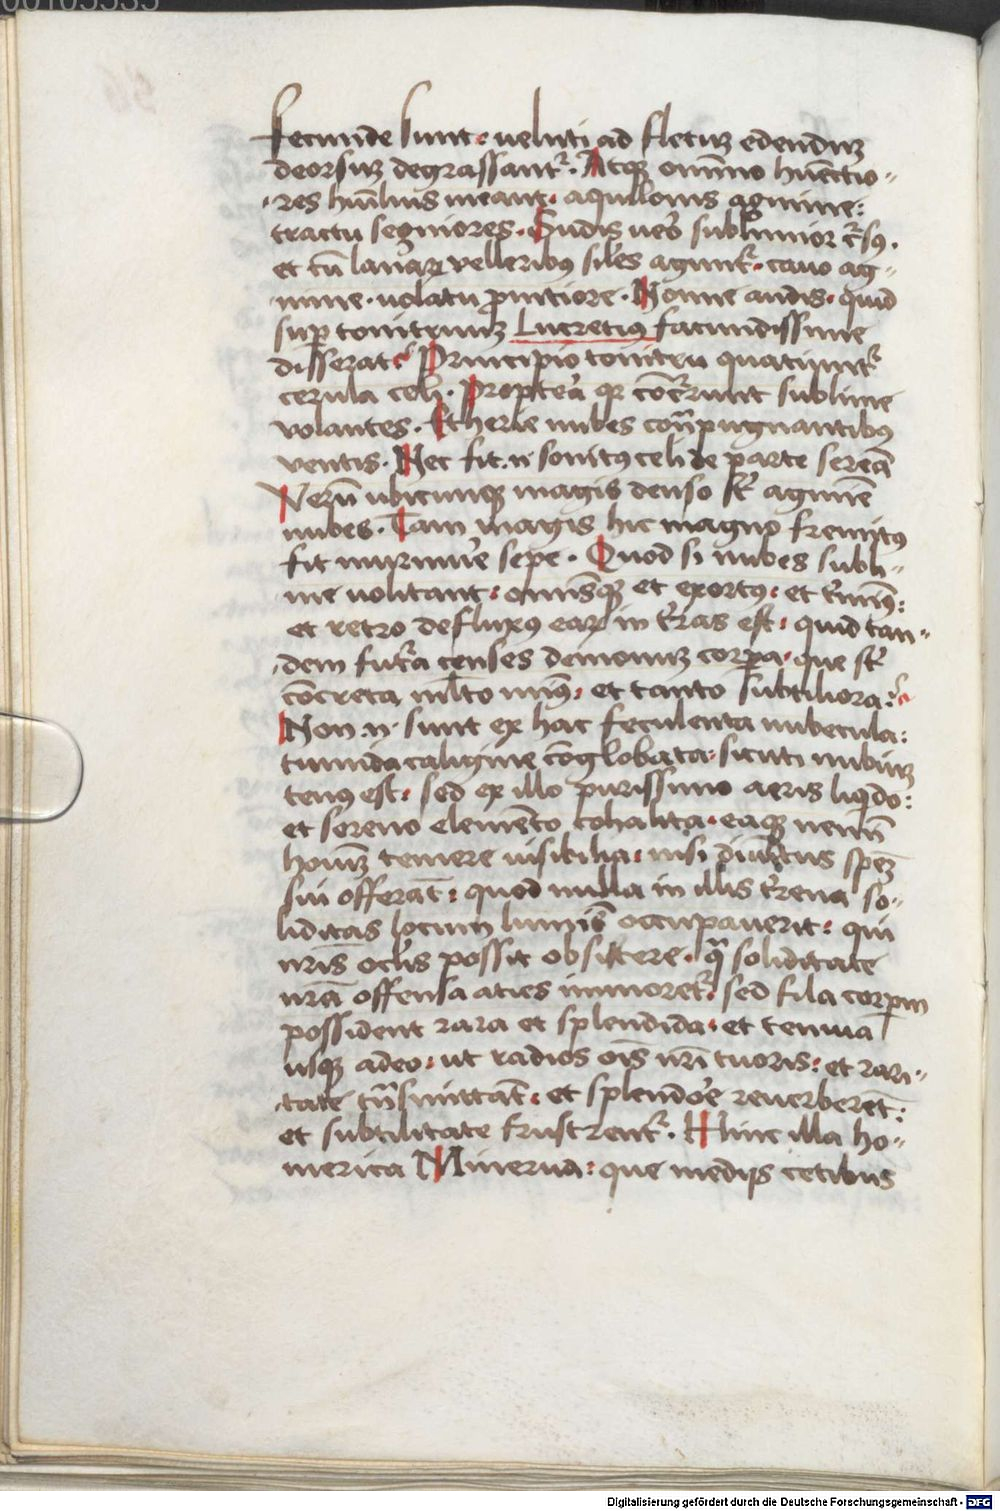 fecunde sunt: ueluti ad fletuz edendūz
deorsuz degrassantr̄. Atqꝫ omīno huēctio-
res humilius meant. aquilonis agmine:
tractu segniores. Sudis uero sublimior cursꝰ.
et cū lanaꝝ velleribꝰ siles agunt̄. cano ag-
mine. uolatu ꝑnitiore. Nonne audis. quid
suꝑ tonitruuz Lucretiꝰ facundissime
disserat? Principio tonitru quatiunt̄
cerula celi. Propterea qꝛ cōcurrunt sublime
volantes. Etherie nubes contra pugnantibꝰ
ventis. Nec fit. n. sonitꝰ celi de parte serena
Verū ubicunqꝫ magis denso sūt agmine
nubes. Tam magis hic magno fremitꝰ
fit murmure sepe. Quod si nubes subli-
me uolitant: quisqꝫ et exortꝰ: et terminꝰ:
et retro defluxꝰ eaꝝ in terras est: quid tan-
dem futura censes demonuz corpora. que sūt
concreta multo minꝰ. et tanto subtiliora?
Non. n. sunt ex hac feculenta nubecula:
tumida caligine cōglobata: sicuti nubiuz
tenꝰ est: sed ex illo purissimo aeris liqido:
et sereno elemēto cohalita. eaqꝫ nemini
hominuz temere uisibilia: nisi diuinitus speꝫ
sui offerāt: quod nulla in illis terrena so-
liditas locum luminis occupauerit: qui
nr̄is oclis possit obsistere. qua soliditate
nr̄a offensa acies immoret̄: sed fila corporum
possident rara et splendida. et tenuia
usqꝫ adeo. ut radios oīs nr̄i tuoris: et rari-
tate trāsmittāt: et splendore reuerberēt:
et subtilitate frustrent̄. Hinc illa ho-
merica Minerua: que medijs cetibus
Digitalisierung gefördert durch die Deutsche Forschungsgemeinschaft - DFG